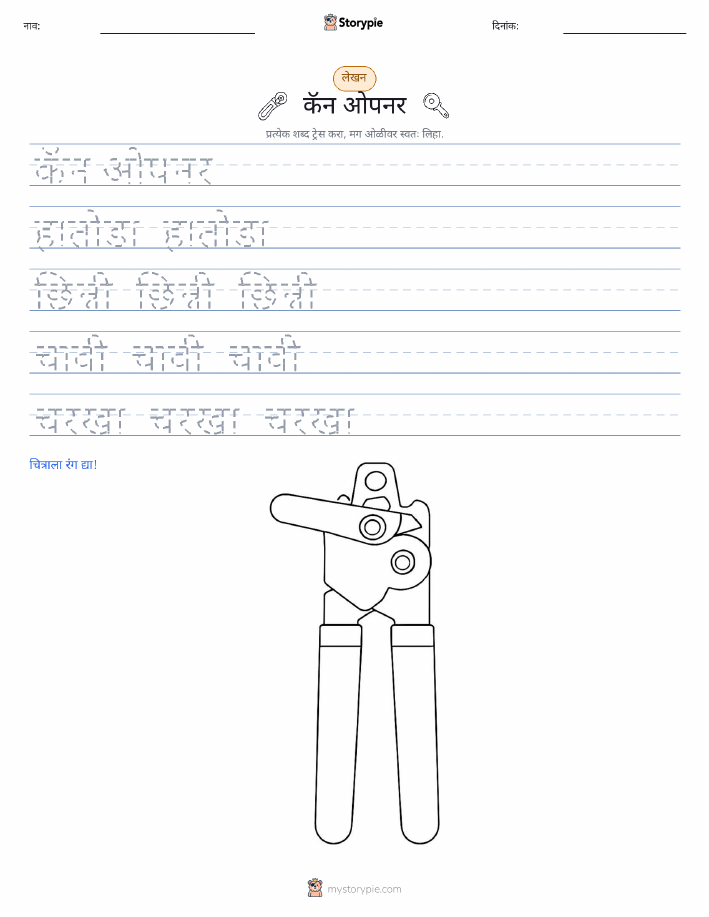 नाव:
Storypie
दिनांक:
लेखन
कॅन ओपनर
प्रत्येक शब्द ट्रेस करा, मग ओळीवर स्वतः लिहा.
कॅन ओपनर
हातोडा हातोडा
छिन्नी छिन्नी छिन्नी
चावी चावी चावी
चरखा चरखा चरखा
चित्राला रंग द्या!
mystorypie.com